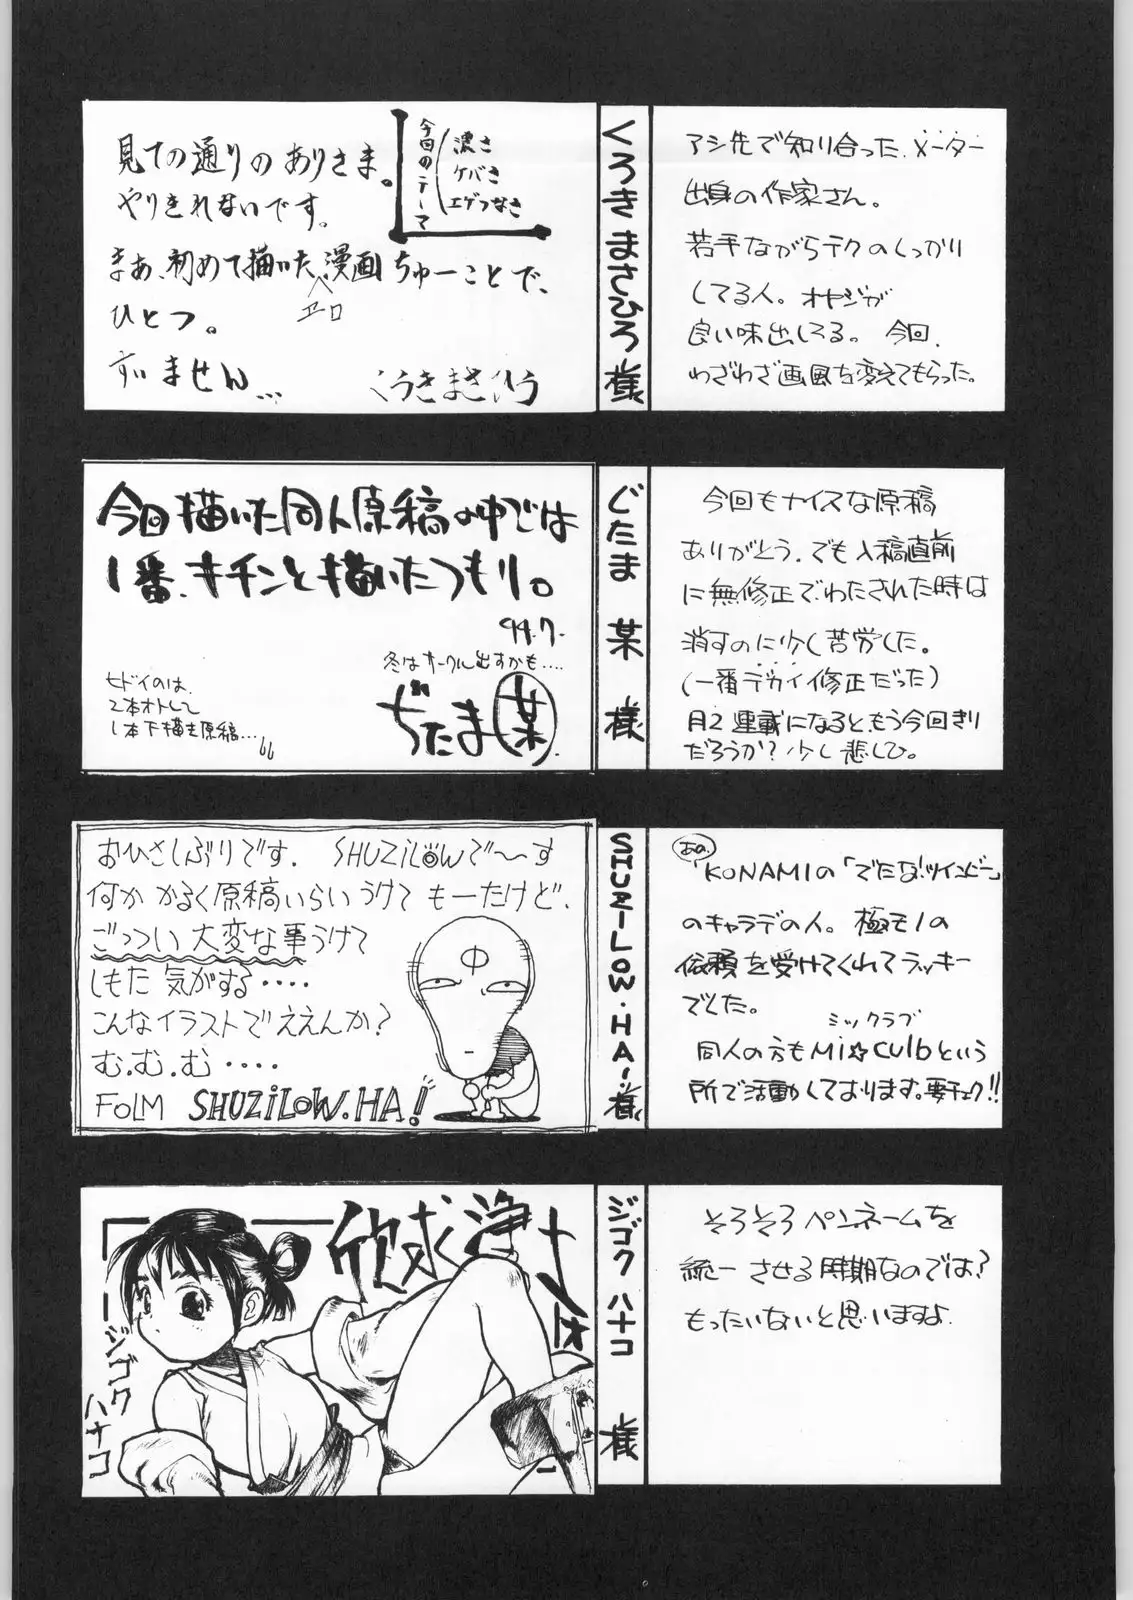 見ての通りのありさま。
やりきれないです。
まぁ、初めて描いた漫画ちゅーことで、
エロ
ひとつ。
すいません...
くろきまさひろ
今回のテーマ
濃さ
ケバさ
エゲつなさ
くろきまさひろ様
アシ先で知り合った、メーター
出身の作家さん。
若手ながらテクのしっかり
してる人。オヤジが
良い味出してる。今回、
わざわざ画風を変えてもらった。
今回描いた同人原稿の中では
1番、キチンと描いたつもり。
94.7-
冬はサークル出すかも....
ヒドイのは、
2本オトして
1本下描き原稿...
じたま某
じたま某様
今回もナイスな原稿
ありがとう。でも入稿直前
に無修正でわたされた時は
消すのに少し苦労した。
(一番デカイ修正だった)
月2連載になると、もう今回きり
だろうか?少し悲しひ。
おひさしぶりです。SHUZiLOWで〜す
何かかるく原稿いらいうけてもーたけど、
ごっつい大変な事うけて
しもた気がする・・・・
こんなイラストでええんか?
む.む.む・・・・
FOLM SHUZiLOW.HA!
中
SHUZILOW・HA!様
あの、
KONAMIの「でたな!ツインビー」
のキャラデの人。極モノの
依頼を受けてくれてラッキー
でした。
ミックラブ
同人の方もMI☆CUlbという
所で活動しております。要チェク!!
欣求浄土
ジゴク
ハナコ
ジゴク ハナコ 様
そろそろペンネームを
統一させる時期なのでは?
もったいないと思いますよ